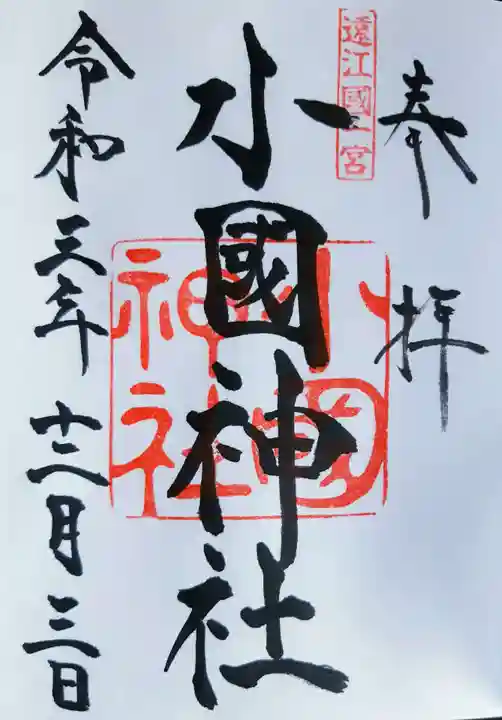 奉拝
遠江國一宮
小國神社
小國神社
令和三年十二月三日